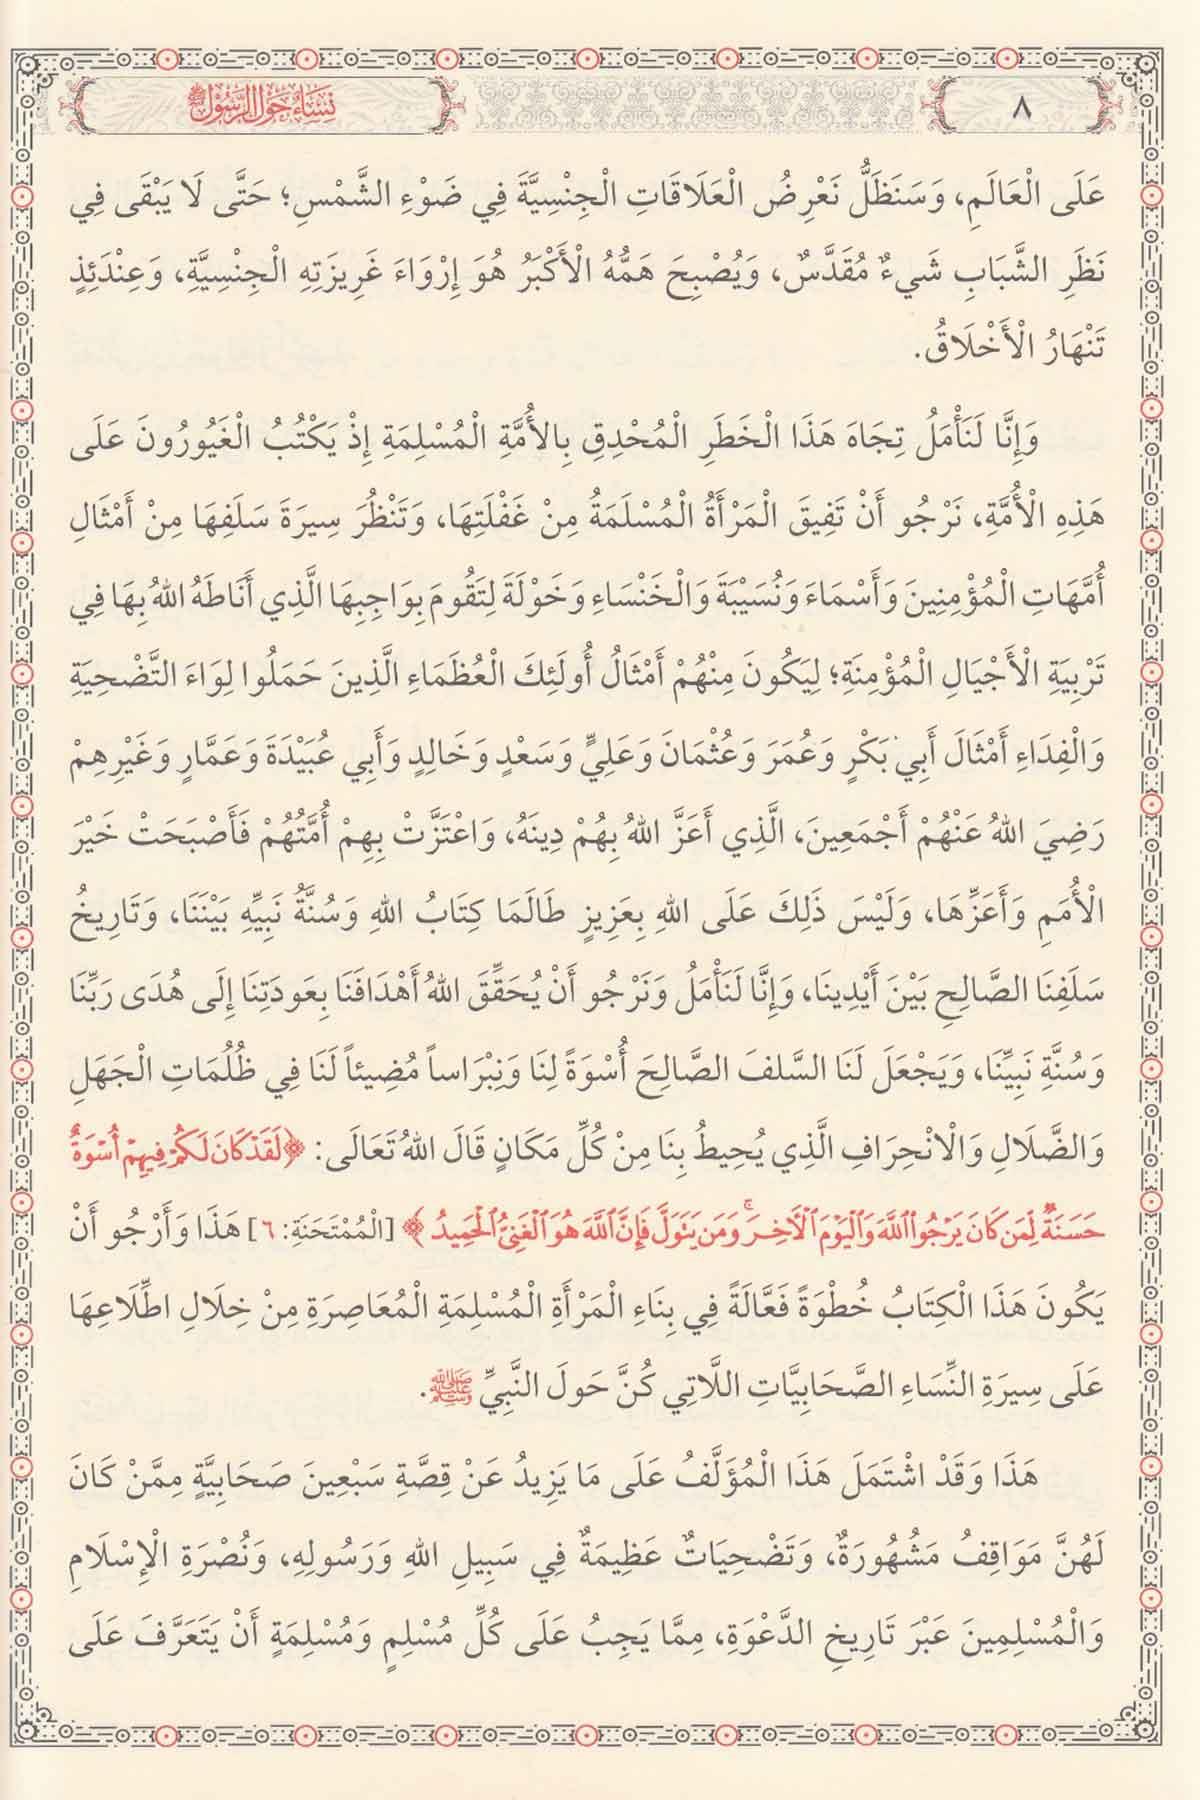 ٨
نِسَاءٌ حَوْلَ الرَّسُولِ ﷺ
عَلَى الْعَالَمِ، وَسَنَظَلُّ نَعْرِضُ الْعَلَاقَاتِ الْجِنْسِيَّةَ فِي ضَوْءِ الشَّمْسِ؛ حَتَّى لَا يَبْقَى فِي
نَظَرِ الشَّبَابِ شَيءٌ مُقَدَّسٌ، وَيُصْبِحَ هَمُّهُ الْأَكْبَرُ هُوَ إِرْوَاءَ غَرِيزَتِهِ الْجِنْسِيَّةِ، وَعِنْدَئِذٍ
تَنْهَارُ الْأَخْلَاقُ.
وَإِنَّا لَنَأْمَلُ تِجَاهَ هَذَا الْخَطَرِ الْمُحْدِقِ بِالأُمَّةِ الْمُسْلِمَةِ إِذْ يَكْتُبُ الْغَيُورُونَ عَلَى
هَذِهِ الْأُمَّةِ، نَرْجُو أَنْ تَفِيقَ الْمَرْأَةُ الْمُسْلَمَةُ مِنْ غَفْلَتِهَا، وَتَنْظُرَ سِيرَةَ سَلَفِهَا مِنْ أَمْثَالِ
أُمَّهَاتِ الْمُؤْمِنِينَ وَأَسْمَاءَ وَنُسَيْبَةَ وَالْخَنْسَاءِ وَخَوْلَةَ لِتَقُومَ بِوَاجِبِهَا الَّذِي أَنَاطَهُ اللهُ بِهَا فِي
تَرْبِيَةِ الْأَجْيَالِ الْمُؤْمِنَةِ؛ لِيَكُونَ مِنْهُمْ أَمْثَالُ أُولَئِكَ الْعُظَمَاءِ الَّذِينَ حَمَلُوا لِوَاءَ التَّضْحِيَةِ
وَالْفِدَاءِ أَمْثَالَ أَبِي بَكْرٍ وَعُمَرَ وَعُثْمَانَ وَعَلِيٍّ وَسَعْدٍ وَخَالِدٍ وَأَبِي عُبَيْدَةَ وَعَمَّارٍ وَغَيْرِهِمْ
رَضِيَ اللهُ عَنْهُمْ أَجْمَعِينَ، الَّذِي أَعَزَّ اللهُ بِهُمْ دِينَهُ، وَاعْتَزَّتْ بِهِمْ أُمَّتُهُمْ فَأَصْبَحَتْ خَيْرَ
الْأُمَمِ وَأَعَزِّهَا، وَلَيْسَ ذَلِكَ عَلَى اللهِ بِعَزِيزٍ طَالَمَا كِتَابُ اللهِ وَسُنَّةُ نَبِيِّهِ بَيْنَنَا، وَتَارِيخُ
سَلَفِنَا الصَّالِحِ بَيْنَ أَيْدِينَا، وَإِنَّا لَنَأْمَلُ وَنَرْجُو أَنْ يُحَقِّقَ اللهُ أَهْدَافَنَا بِعَودَتِنَا إِلَى هُدَى رَبِّنَا
وَسُنَّةِ نَبِيِّنَا، وَيَجْعَلَ لَنَا السَّلَفَ الصَّالِحَ أُسْوَةً لِنَا وَنِبْرَاساً مُضِيئاً لَنَا فِي ظُلُمَاتِ الْجَهَلِ
وَالضَّلَالِ وَالْانْحِرَافِ الَّذِي يُحِيطُ بِنَا مِنْ كُلِّ مَكَانٍ قَالَ اللهُ تَعَالَى: ﴿لَقَدْ كَانَ لَكُمْ فِيهِمْ أُسْوَةٌ
حَسَنَةٌ لِّمَن كَانَ يَرْجُوا۟ ٱللَّهَ وَٱلْيَوْمَ ٱلْأَخِرَ ۚ وَمَن يَتَوَلَّ فَإِنَّ ٱللَّهَ هُوَ ٱلْغَنِىُّ ٱلْحَمِيدُ﴾ [الْمُمْتَحَنَةِ: ٦] هَذَا وَأَرْجُو أَنْ
يَكُونَ هَذَا الْكِتَابُ خُطْوَةً فَعَّالَةً فِي بِنَاءِ الْمَرْأَةِ الْمُسْلِمَةِ الْمُعَاصِرَةِ مِنْ خِلَالِ اطِّلَاعِهَا
عَلَى سِيرَةِ النِّسَاءِ الصَّحَابِيَّاتِ اللَّاتِي كُنَّ حَولَ النَّبِيِّ ﷺ.
هَذَا وَقَدْ اشْتَمَلَ هَذَا الْمُؤَلَّفُ عَلَى مَا يَزِيدُ عَنْ قِصَّةِ سَبْعِينَ صَحَابِيَّةٍ مِمَّنْ كَانَ
لَهُنَّ مَوَاقِفُ مَشْهُورَةٌ، وَتَضْحِيَاتٌ عَظِيمَةٌ فِي سَبِيلِ اللهِ وَرَسُولِهِ، وَنُصْرَةِ الْإِسْلَامِ
وَالْمُسْلِمِينَ عَبْرَ تَارِيخِ الدَّعْوَةِ، مِمَّا يَجِبُ عَلَى كُلِّ مُسْلِمٍ وَمُسْلِمَةٍ أَنْ يَتَعَرَّفَ عَلَى